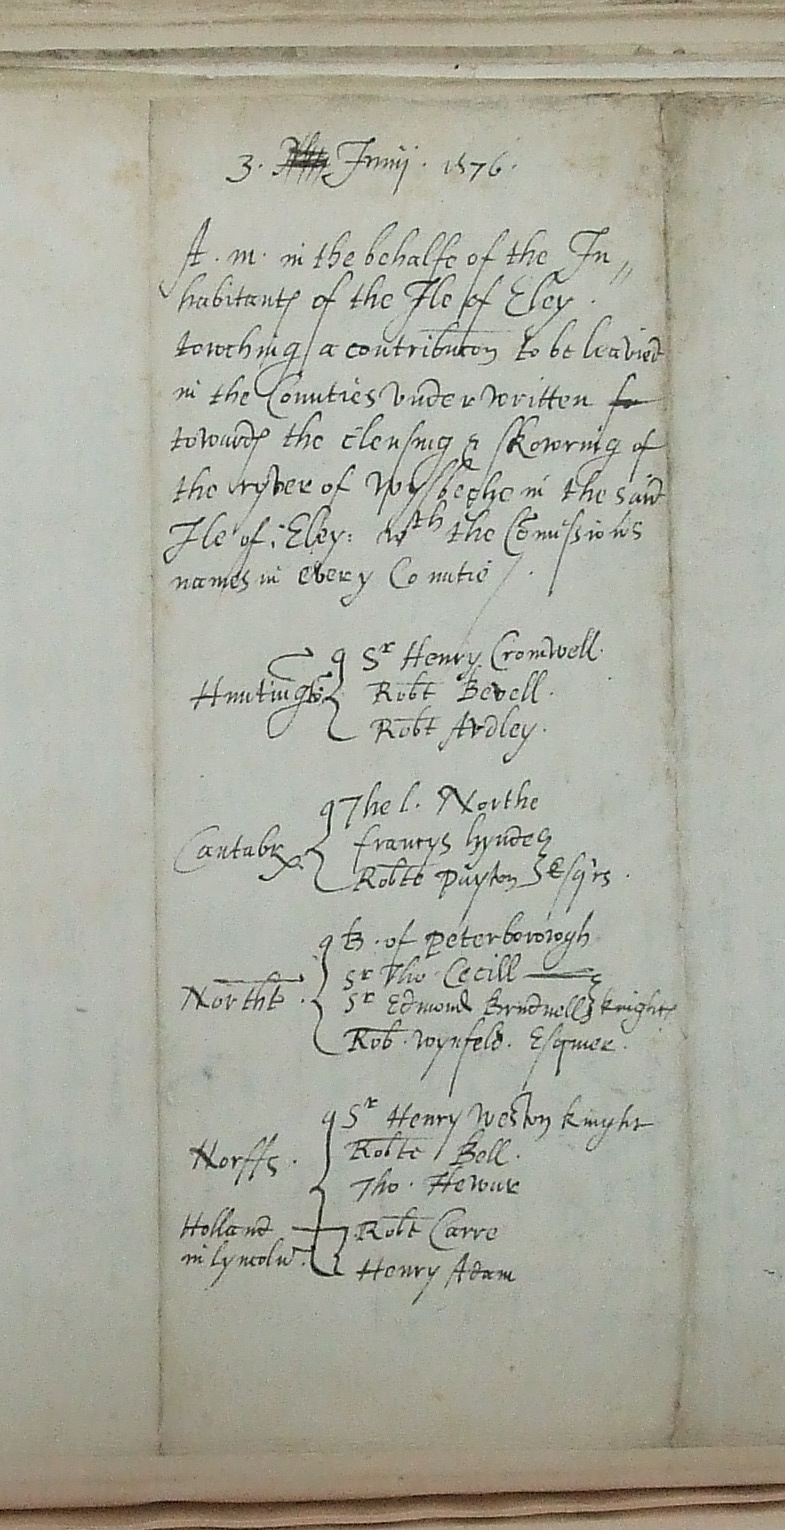 3. Junij . 1576.
A . m . in the behalfe of the In„
habitantę of the Ile of Eley .
towching a contribution to be leavied
in the Counties underwritten for
towardę the clensing & skowring of
the ryver of Wysbeche in the said
Ile of Eley : wth the Comissiohs
names in every Countie .
Huntingto { Sr Henry Cromwell .
Robt Bevell .
Robt Ardley .
Cantabr { The l . Northe
francys hynde
Robte peyton } Esqrs .
Northt . { B . of Peterborowgh
Sr Tho . Cecill
Sr Edmond Brudnell } knightę
Rob . Wynfeld . Esquier .
Norff . { Sr Henry Weston knyght
Robte Bell .
Tho . Hewar
Holland } Robt Carre
in lyncoln . Henry Adam